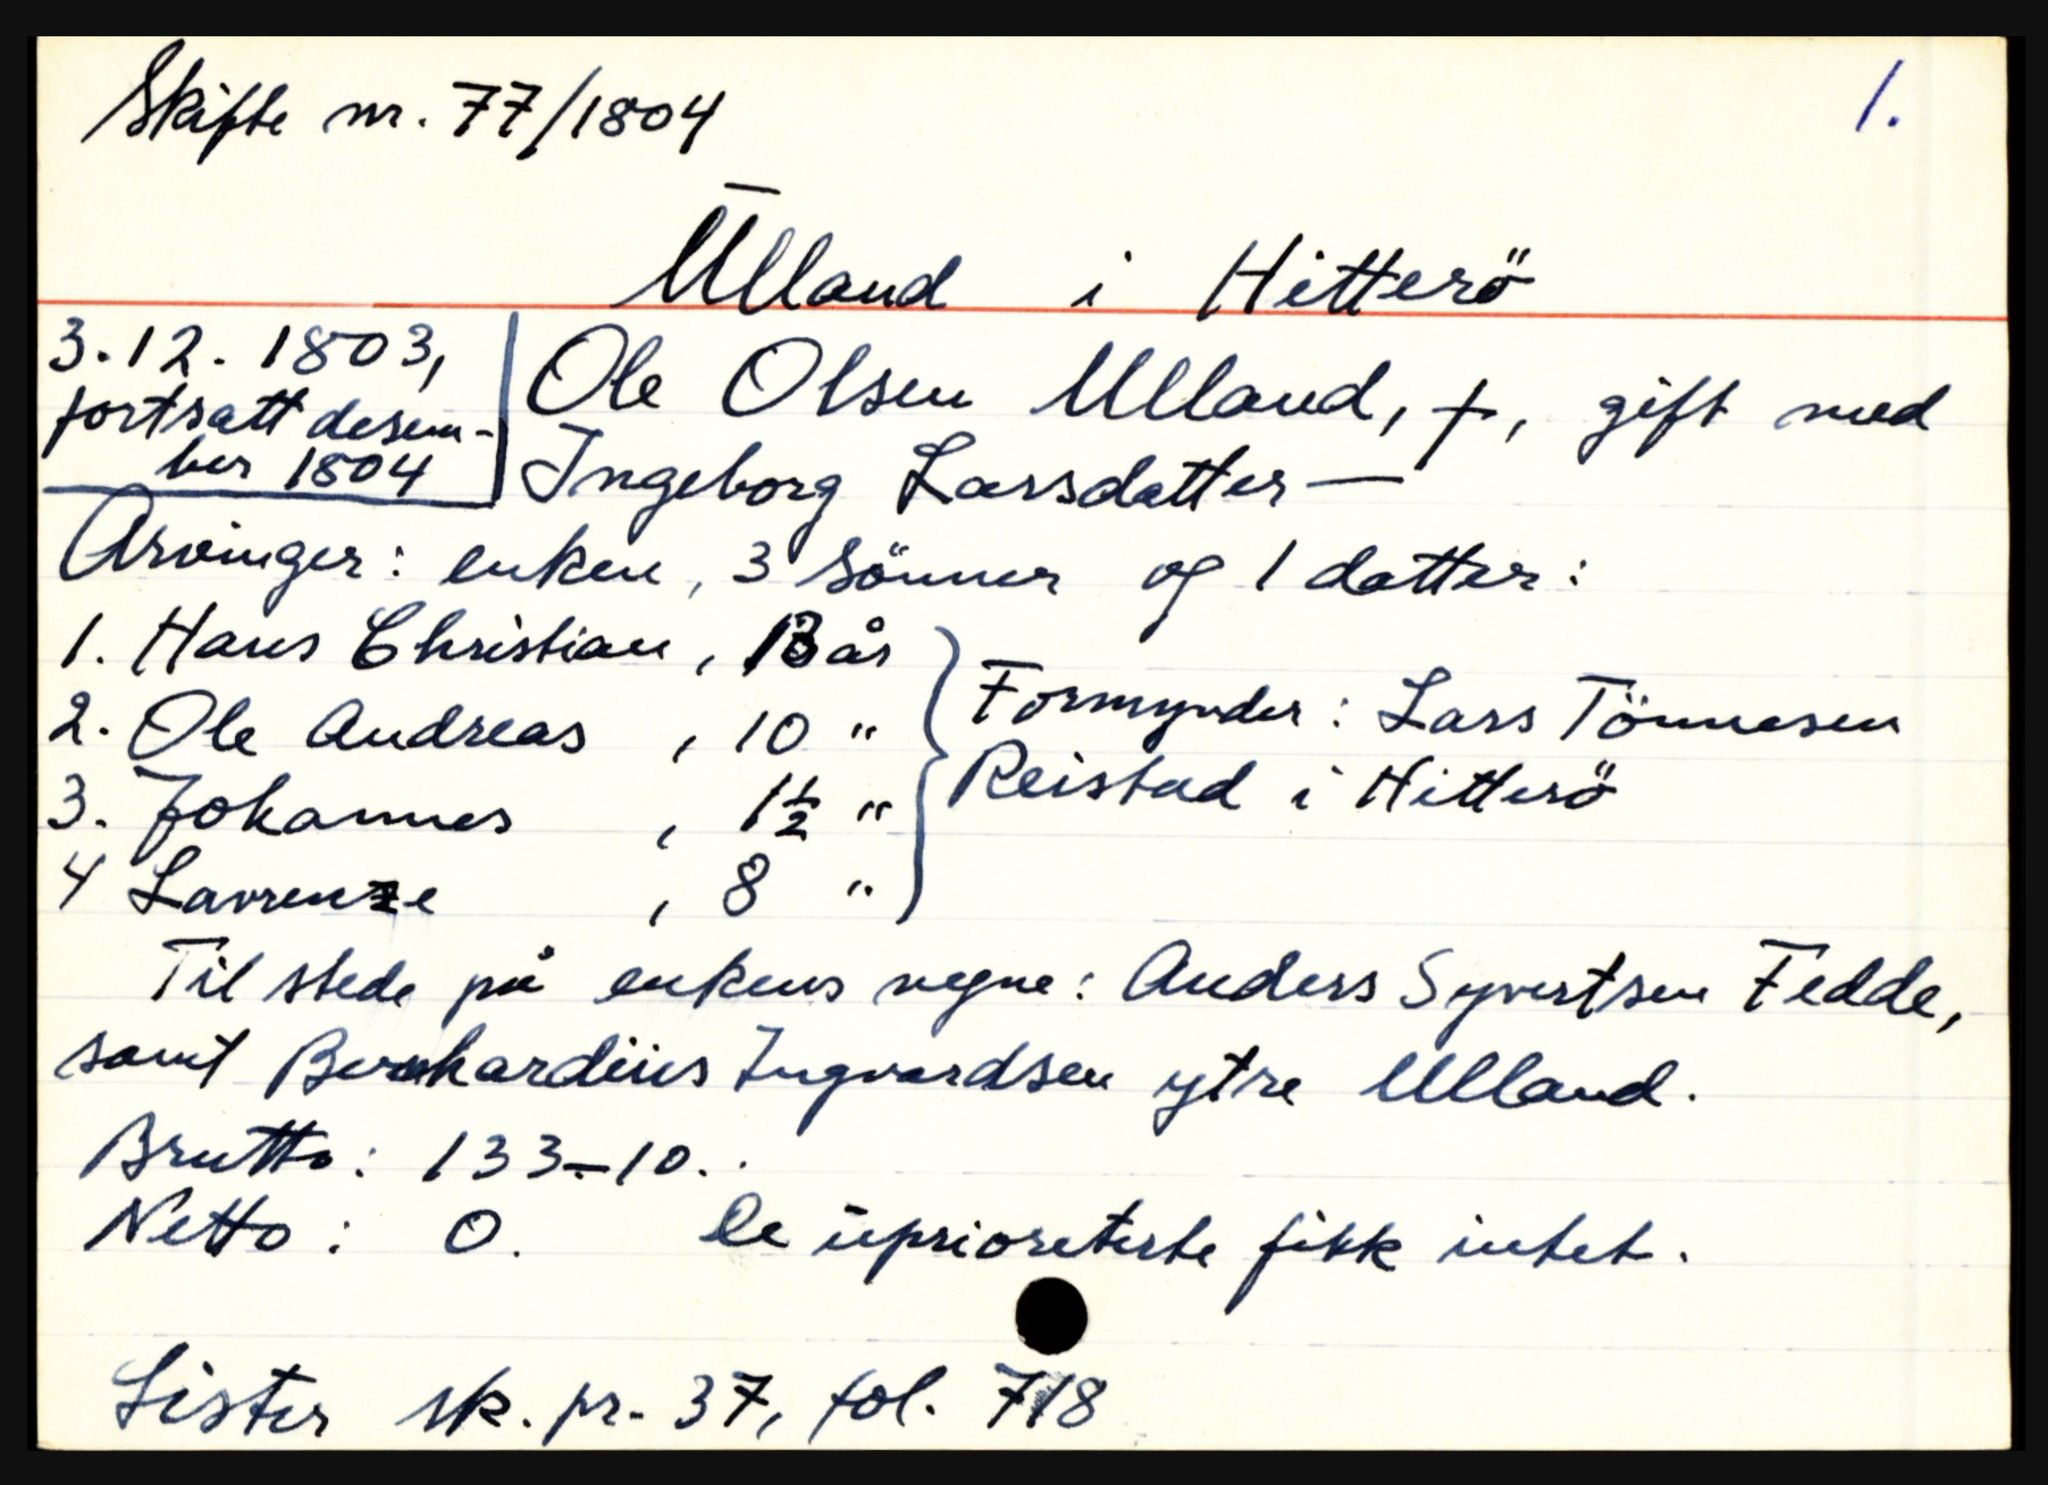 Skifte nr. 77/1804
1.
Ulland i Hitterö
3.12. 1803,
fortsatt desem-
ber 1804
Ole Olsen Ulland, +, gift med
Ingeborg Larsdatter —
Arvinger: enken, 3 sönner og 1 datter:
1. Hans Christian, 13 år
2. Ole Andreas, 10 "
3. Johannes, 1½ "
4 Lavrenze, 8 "
Formynder: Lars Tönnesen
Reistad i Hitterö
Til stede på enkens vegne: Anders Syvertsen Fedde,
samt Bernhardius Ingvardsen ytre Ulland.
Brutto: 133–10.
Netto: 0. De uprioreterte fikk intet.
Lister sk. pr. 37, fol. 718